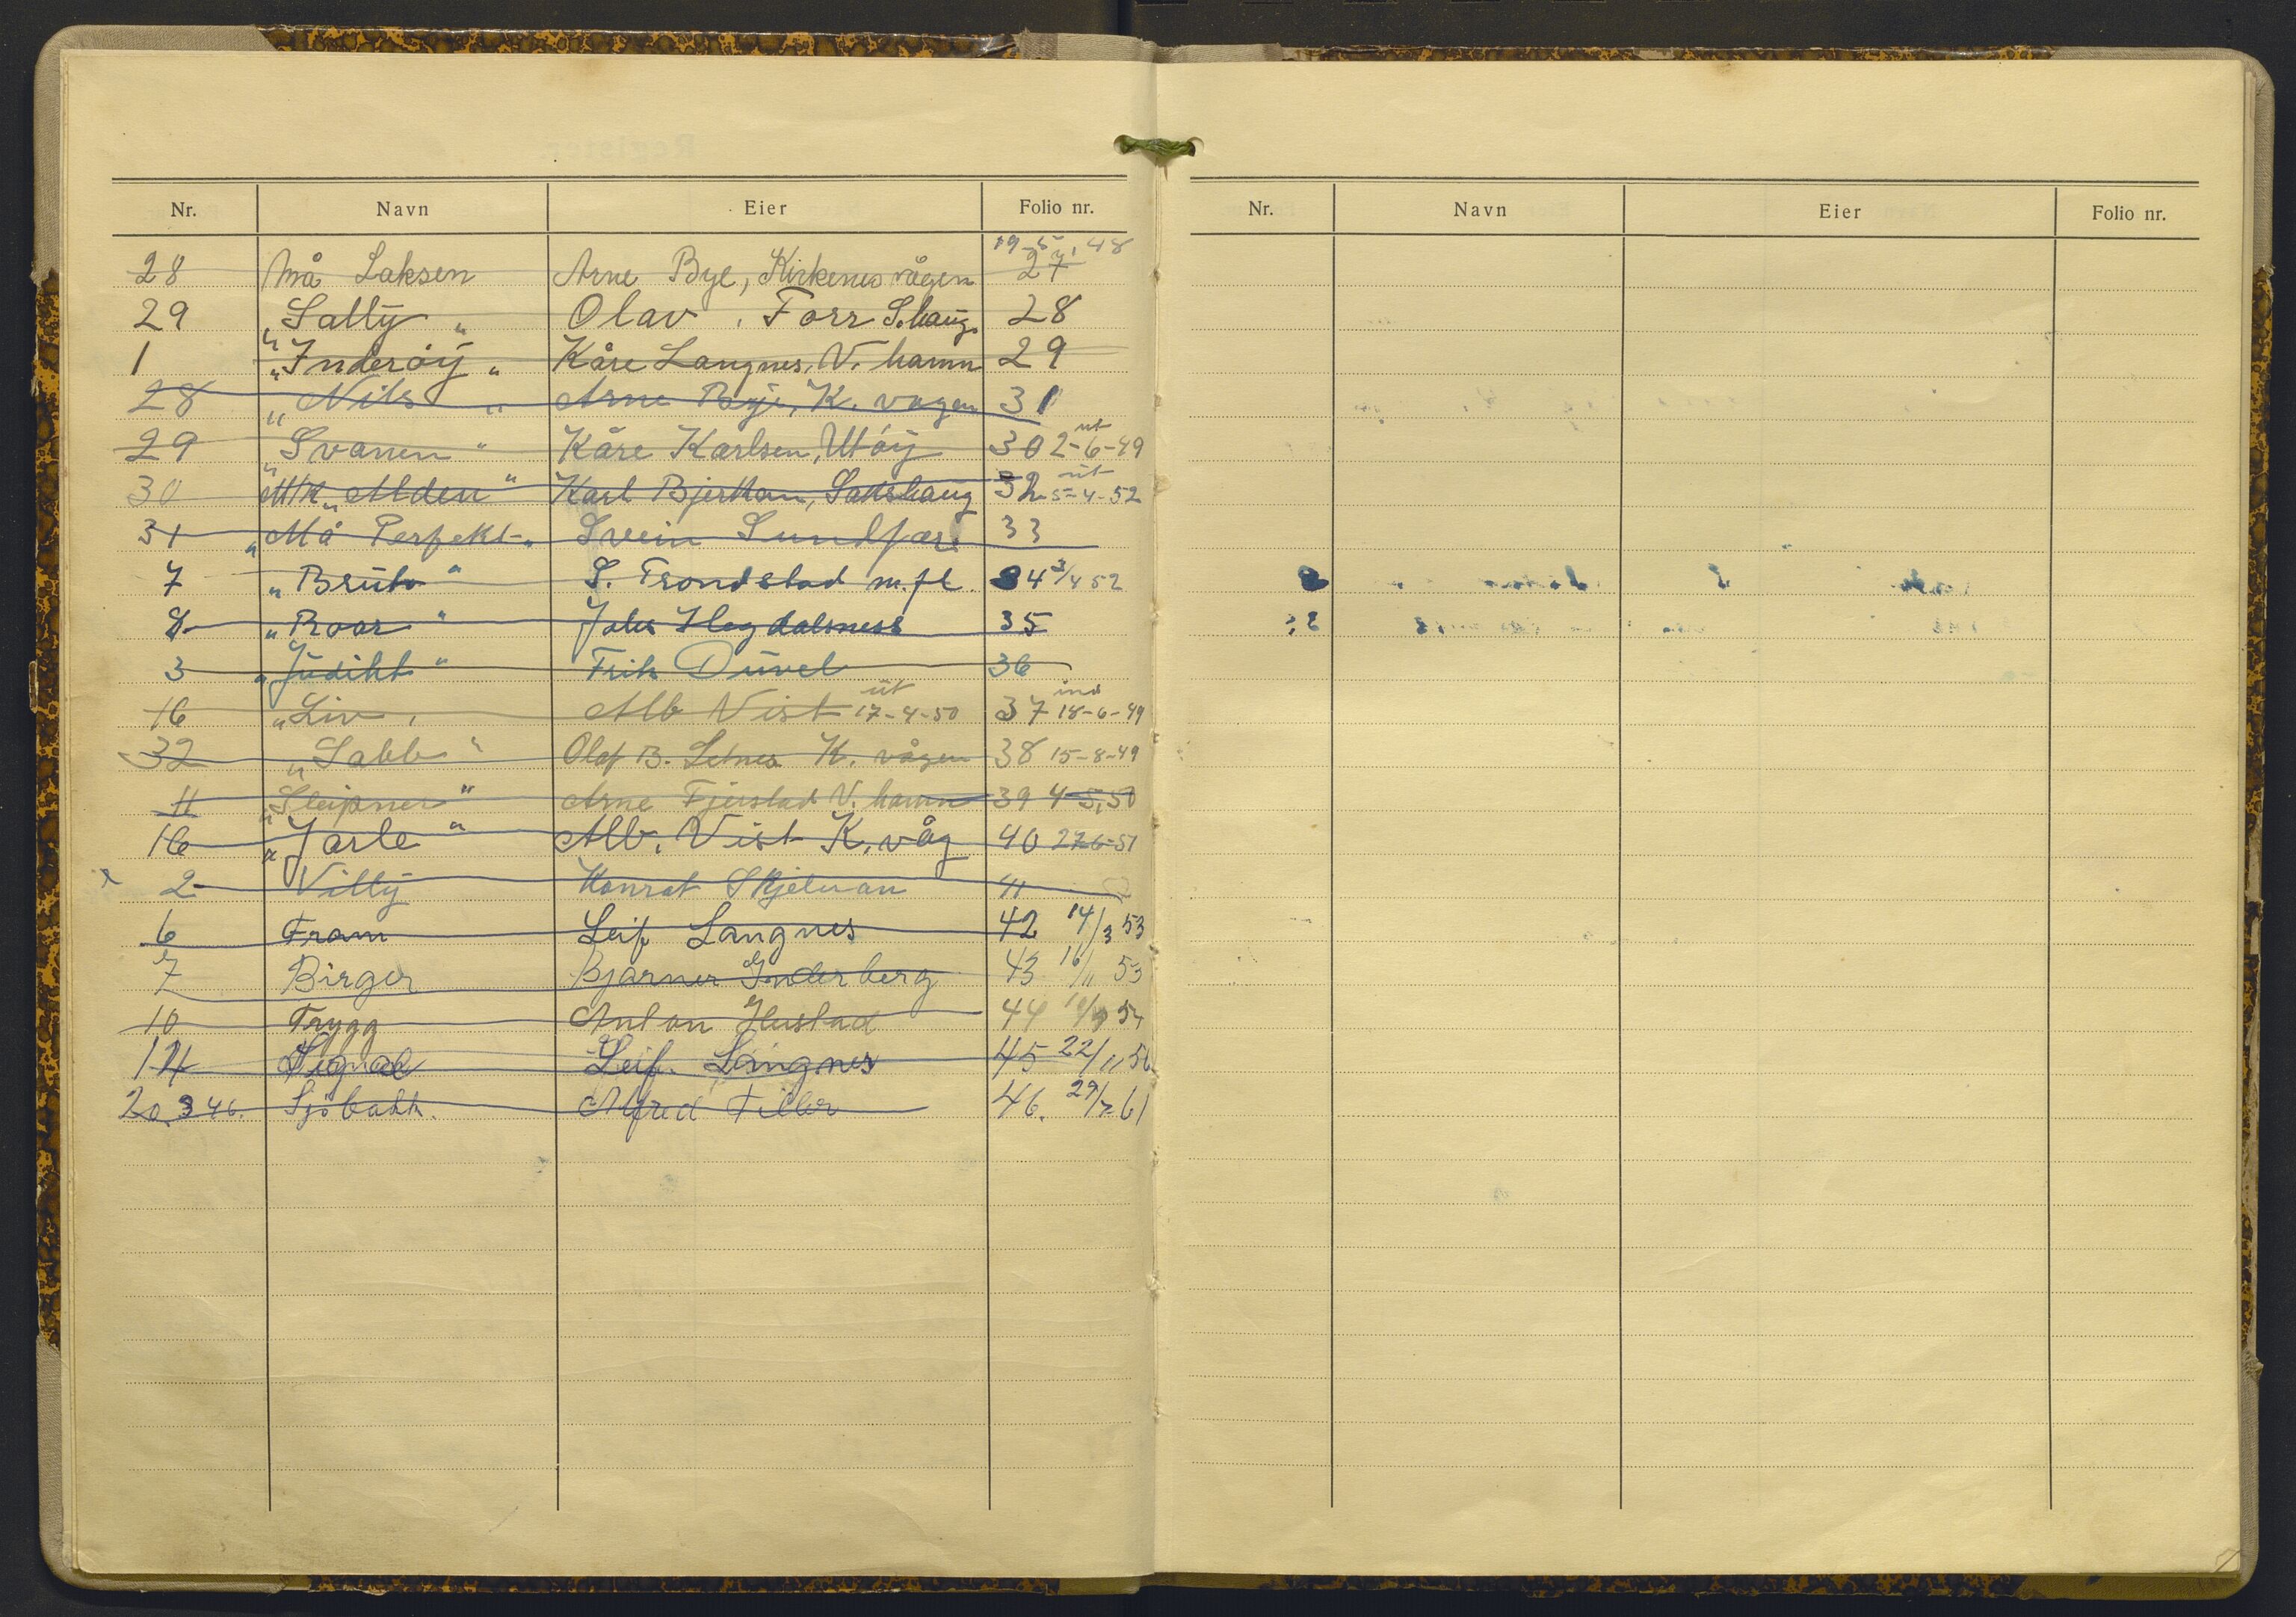 Nr. Navn Eier Folio nr.
19-5-48
28 Må Laksen Arne Bye, Kirkenesvågen 27
29 „Sally" Olav . Forr S.haug. 28
1 „Inderöy" Kåre Langnes, V. hamn 29
28 „Nils" Arne Bye, K. vagen 31
29 „Svanen" Kåre Karlsen, Utöy 30 ut 2-6-49
30 M/K „Alden" Karl Bjerkan, Sakshaug 32 ut 5-4-52
31 „Må Perfekt" Svein Sundfær 33
7 „Bruto" S. Trondstad m.fl. 34 3/4 52
8 „Roar" Johs Hegdalsness 35
3 „Judiht" Frits Düvel 36
16 „Liv" Alb Vist ut 17-4-50 37 ind 18-6-49
32 „Sabb" Olaf B. Letnes K. vågen 38 15-8-49
11 „Sleipner" Arne Fjerstad V. hamn 39 4-5,50
16 „Jarle" Alb. Vist K. våg 40 27-6-51
x 2 Villy Konrat Skjelvan 41
6 Fram Leif Langnes 42 14/3 53
7 Birger Bjarner Inderberg 43 16/11 53
10 Trygg Anton Hustad 44 54
14 Signal Leif Langnes 45 22/11 56
20 346. Sjöbakk. Alfred Filler 46. 29/7 61
Nr. Navn Eier Folio nr.